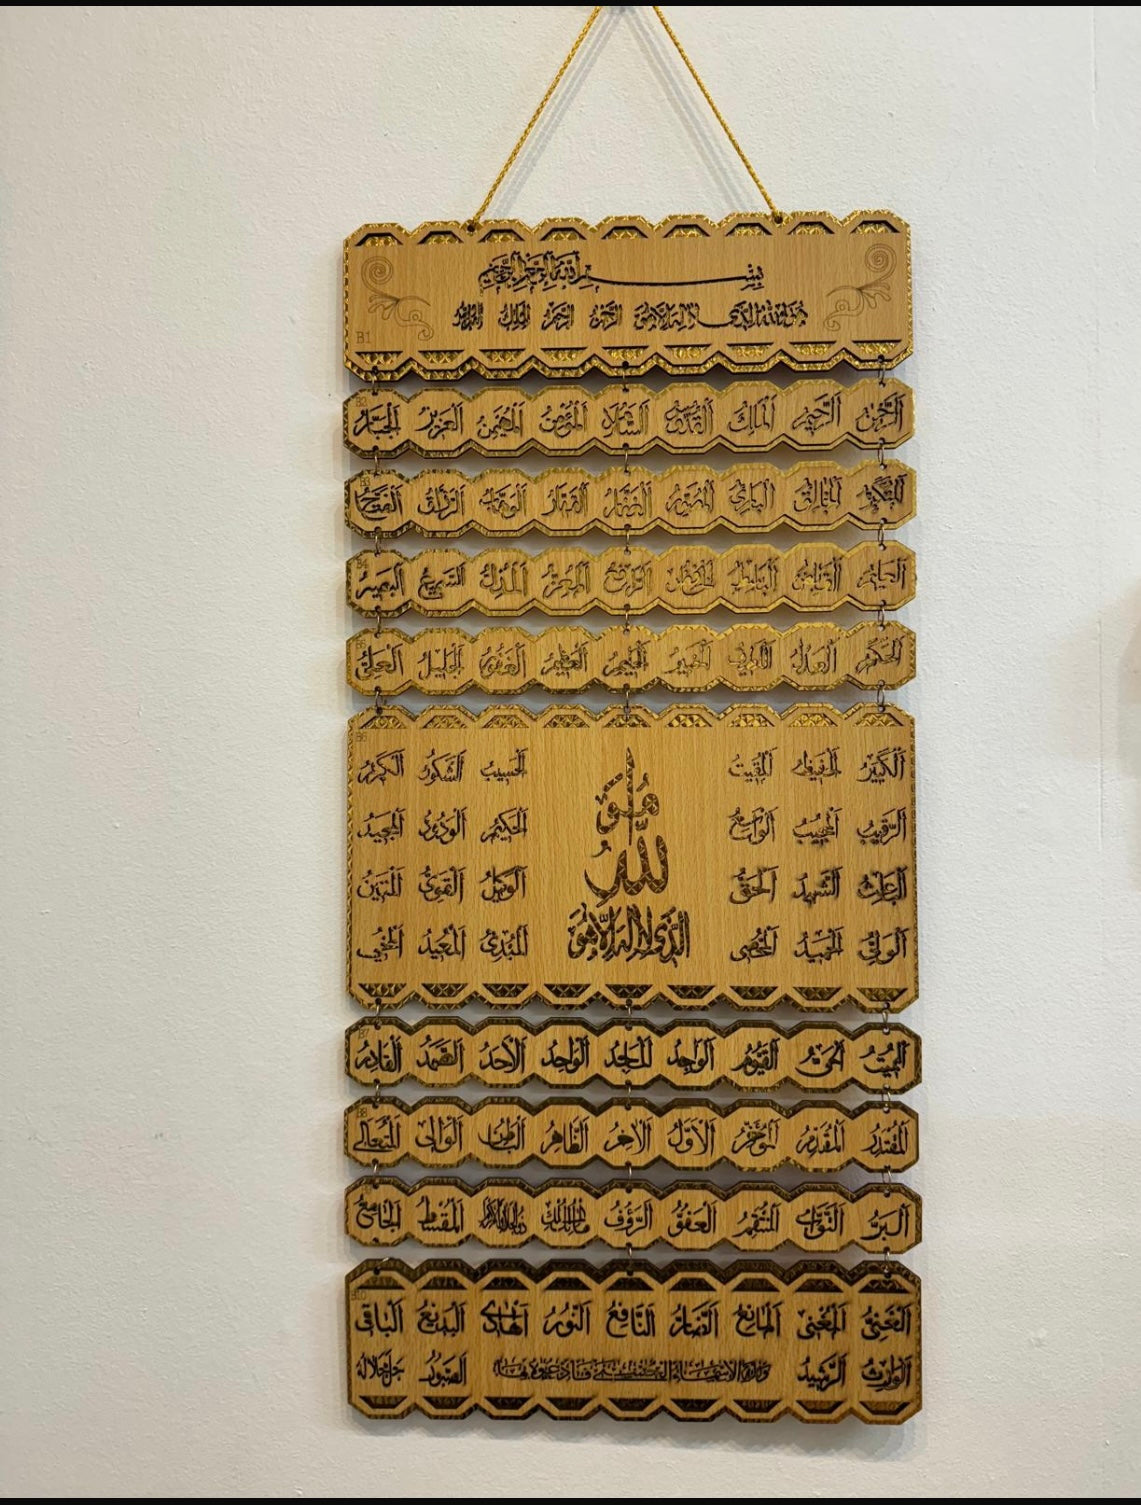 بِسْمِ اللّٰهِ الرَّحْمٰنِ الرَّحِيْمِ
هُوَ اللّٰهُ الَّذِي لَا إِلٰهَ إِلَّا هُوَ الرَّحْمٰنُ الرَّحِيمُ الْمَلِكُ
B1
اَلرَّحْمٰنُ اَلرَّحِيمُ اَلْمَلِكُ اَلْقُدُّوسُ اَلسَّلَامُ اَلْمُؤْمِنُ اَلْمُهَيْمِنُ اَلْعَزِيزُ اَلْجَبَّارُ
اَلْمُتَكَبِّرُ اَلْخَالِقُ اَلْبَارِئُ اَلْمُصَوِّرُ اَلْغَفَّارُ اَلْقَهَّارُ اَلْوَهَّابُ اَلرَّزَّاقُ اَلْفَتَّاحُ
B3
اَلْعَلِيمُ اَلْقَابِضُ اَلْبَاسِطُ اَلْخَافِضُ اَلرَّافِعُ اَلْمُعِزُّ اَلْمُذِلُّ اَلسَّمِيعُ اَلْبَصِيرُ
B4
اَلْحَكَمُ اَلْعَدْلُ اَللَّطِيفُ اَلْخَبِيرُ اَلْحَلِيمُ اَلْعَظِيمُ اَلْغَفُورُ اَلْجَلِيلُ اَلْعَلِيُّ
اَلْكَبِيرُ اَلْحَفِيظُ اَلْمُقِيتُ اَلْحَسِيبُ اَلشَّكُورُ اَلْكَرِيمُ
اَلرَّقِيبُ اَلْمُجِيبُ اَلْوَاسِعُ اَلْحَكِيمُ اَلْوَدُودُ اَلْمَجِيدُ
اَلْبَاعِثُ اَلشَّهِيدُ اَلْحَقُّ اَلْوَكِيلُ اَلْقَوِيُّ اَلْمَتِينُ
اَلْوَلِيُّ اَلْحَمِيدُ اَلْمُحْصِي اَلْمُبْدِئُ اَلْمُعِيدُ اَلْمُحْيِي
هُوَ
اللّٰهُ
الَّذِي لَا إِلٰهَ إِلَّا هُوَ
B7
اَلْمُمِيتُ اَلْحَيُّ اَلْقَيُّومُ اَلْوَاجِدُ اَلْمَاجِدُ اَلْوَاحِدُ اَلْأَحَدُ اَلصَّمَدُ اَلْقَادِرُ
B8
اَلْمُقْتَدِرُ اَلْمُقَدِّمُ اَلْمُؤَخِّرُ اَلْأَوَّلُ اَلْآخِرُ اَلظَّاهِرُ اَلْبَاطِنُ اَلْوَالِي اَلْمُتَعَالِي
اَلْبَرُّ اَلتَّوَّابُ اَلْمُنْتَقِمُ اَلْعَفُوُّ اَلرَّؤُفُ مَالِكُ الْمُلْكِ ذُو الْجَلَالِ وَالْإِكْرَامِ اَلْمُقْسِطُ اَلْجَامِعُ
B10
اَلْغَنِيُّ اَلْمُغْنِي اَلْمَانِعُ اَلضَّارُّ اَلنَّافِعُ اَلنُّورُ اَلْهَادِي اَلْبَدِيعُ اَلْبَاقِي
اَلْوَارِثُ اَلرَّشِيدُ وَلِلّٰهِ الْأَسْمَاءُ الْحُسْنَى فَادْعُوهُ بِهَا اَلصَّبُورُ جَلَّ جَلَالُهُ